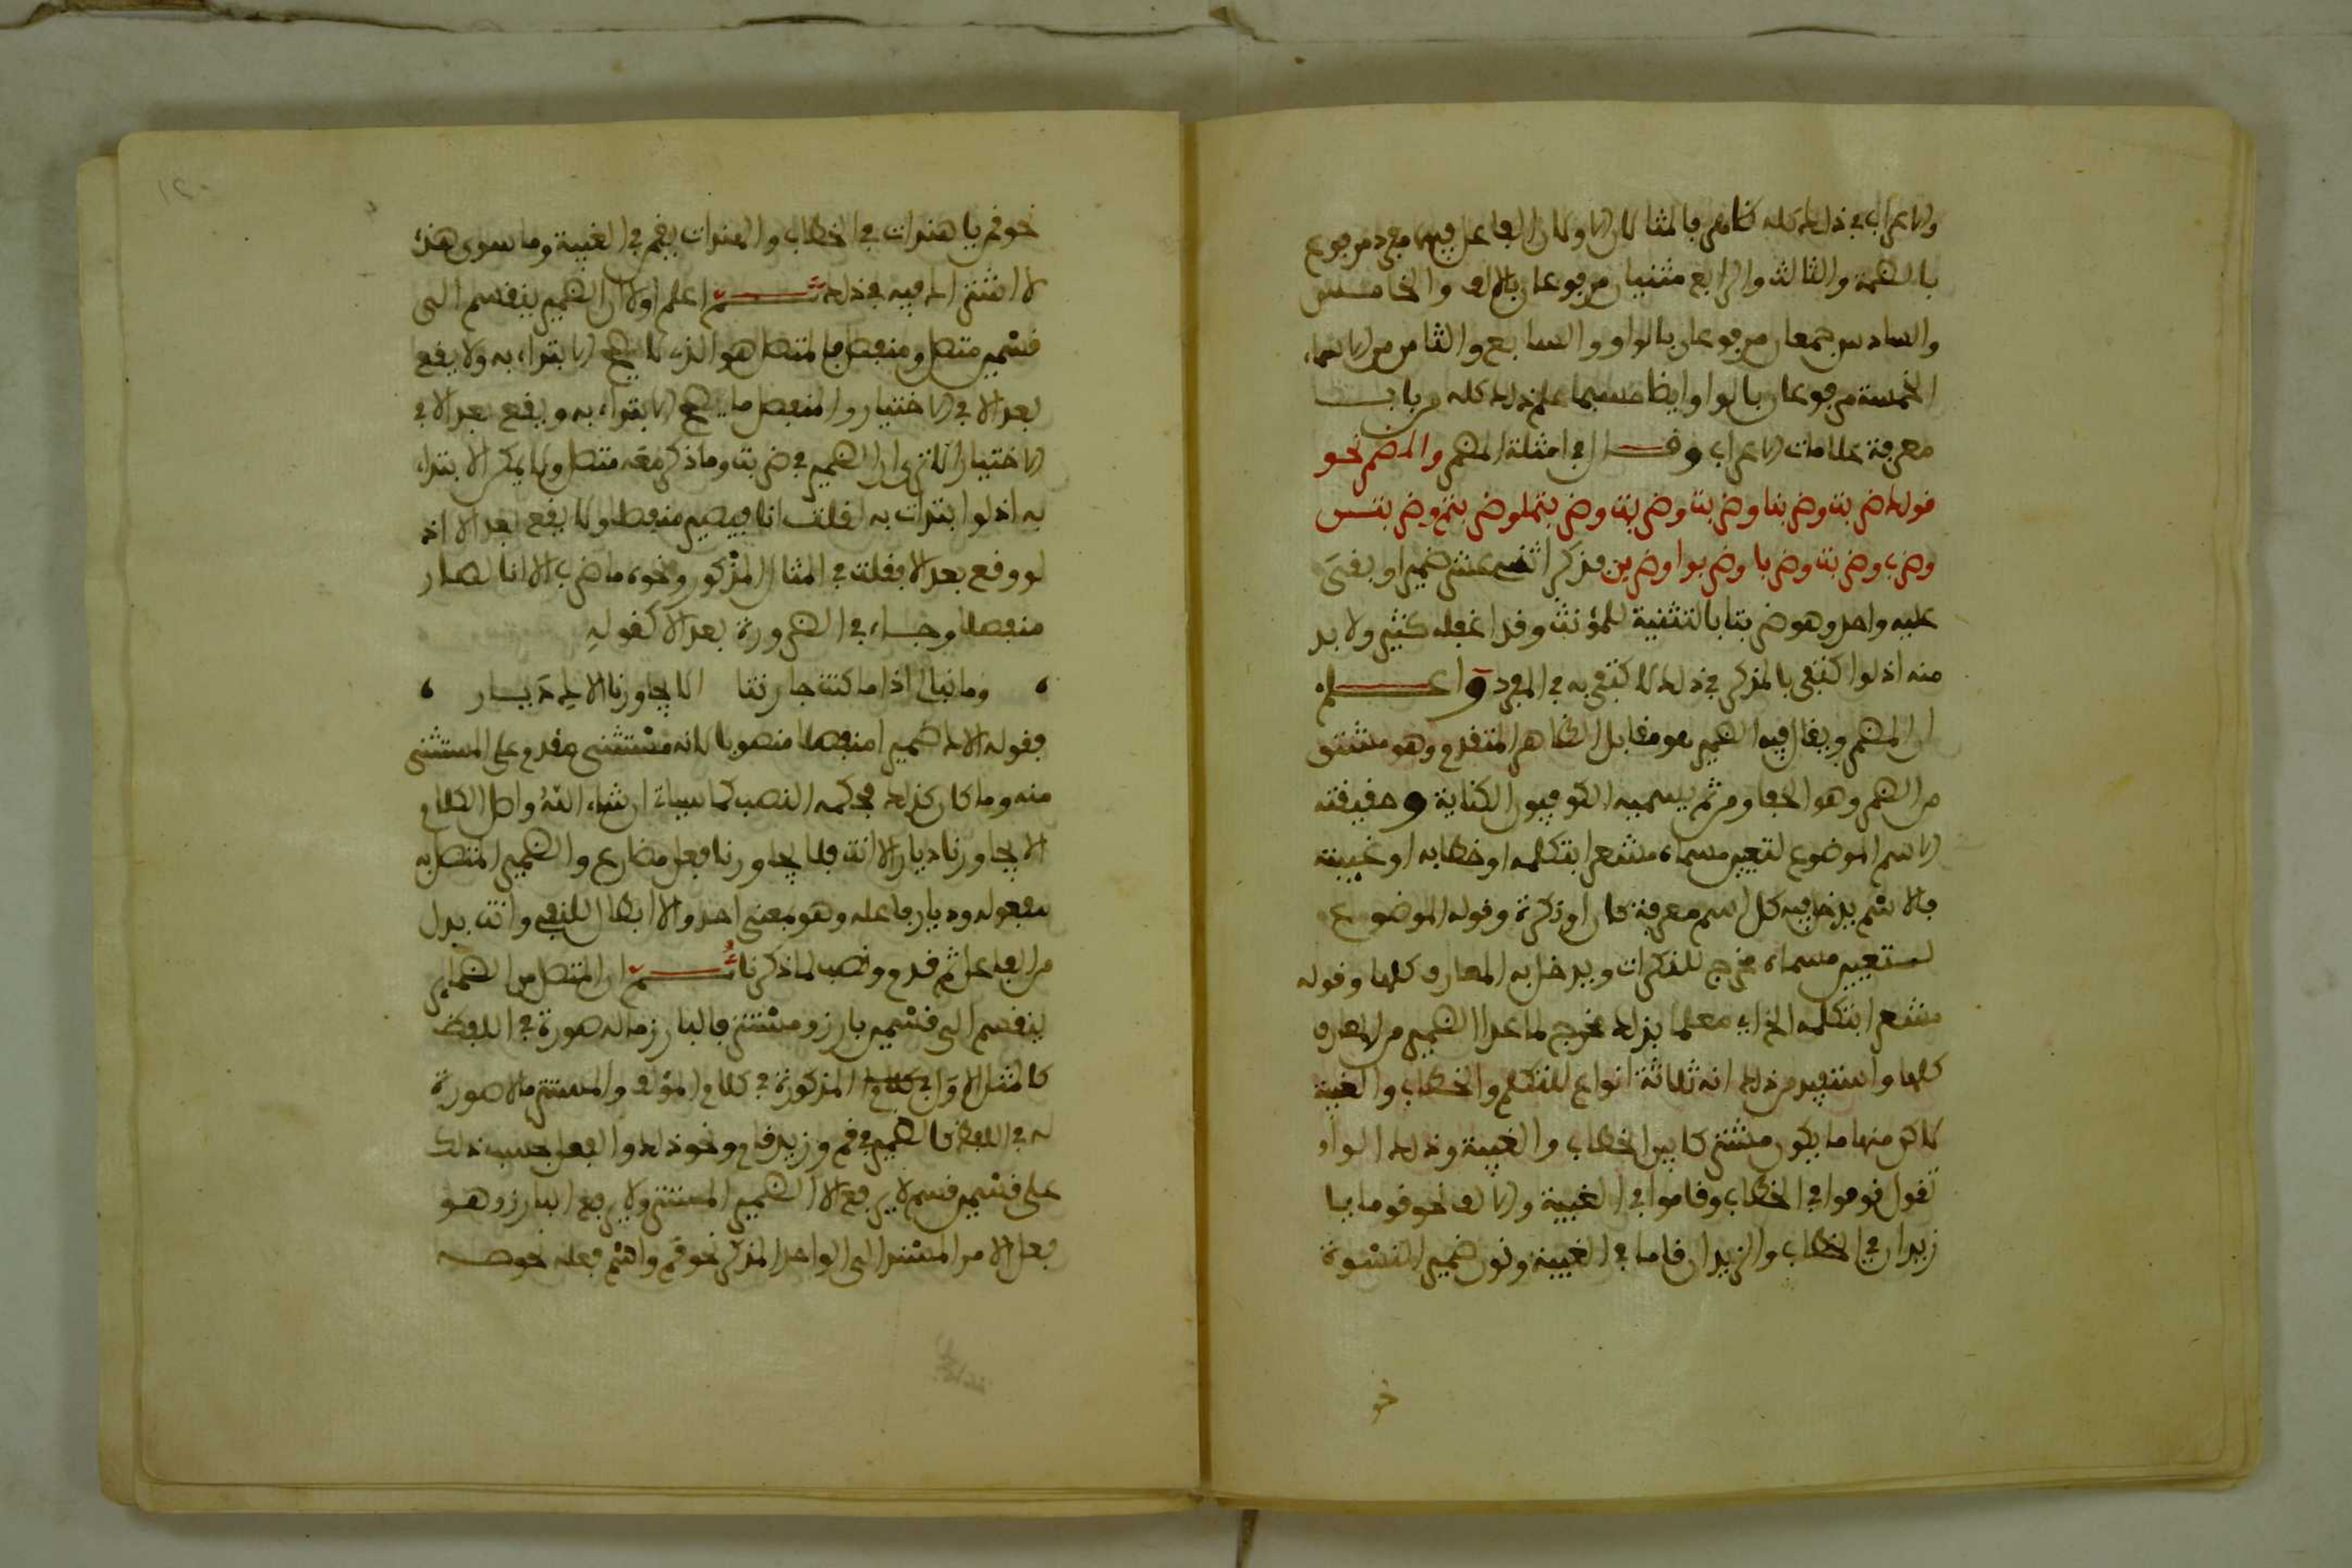 والاعراب في ذلك كله ظاهر فالمثالان الاولان الفاعل فيهما مفرد مرفوع
بالضمة والثالث والرابع مثنيان مرفوعان بالالف والخامس
والسادس جمعان مرفوعان بالواو والسابع والثامن من الاسماء
الخمسة مرفوعان بالواو ايضا حسبما علم ذلك كله من باب
معرفة علامات الاعراب وقال في امثلة المضمر والمضمر نحو
قولك ضربت وضربنا وضربت وضربت وضربتما وضربتم وضربتن
وضرب وضربت وضربا وضربوا وضربن فذكر اثني عشر ضميرا وبقي
عليه واحد وهو ضربتا بالتثنية للمؤنث وقد اغفله كثير ولا بد
منه اذ لو اكتفى بالمذكر في ذلك لاكتفى به في المفرد واعلم
ان المضمر ويقال فيه الضمير هو مقابل الظاهر المتقدم وهو مشتق
من الضمر وهو الخفا ومن ثم يسميه الكوفيون الكناية وحقيقته
الاسم الموضوع لتعيين مسماه مشعرا بتكلمه او خطابه او غيبته
فالاسم يدخل فيه كل اسم معرفة كان او نكرة وقوله الموضوع
لتعيين مسماه مخرج للنكرات ويدخل به المعارف كلها وقوله
مشعرا بتكلمه الخ اي معلما بذلك مخرج لما عدا الضمير من المعارف
كلها واستفيد من ذلك انه ثلاثة انواع للتكلم والخطاب والغيبة
لاكن منها ما يكون مشتركا بين الخطاب والغيبة وذلك الواو
تقول قوموا في الخطاب وقاموا في الغيبة والالف نحو قوما يا
زيدان في الخطاب والزيدان قاما في الغيبة ونون ضمير النسوة
نحو
نحو قمن يا هندات في الخطاب والهندات يقمن في الغيبة وما سوى هذه
لا اشتراك فيه في ذلك ثم اعلم اولا ان الضمير ينقسم الى
قسمين متصل ومنفصل فالمتصل هو الذي لا يصح الابتداء به ولا يقع
بعد الا في الاختيار والمنفصل ما يصح الابتداء به ويقع بعد الا في
الاختيار الا ترى ان الضمير في ضربت وما ذكر معه متصل ولا يمكن الابتداء
به اذ لو ابتدات به لقلت انا فيصير منفصلا ولا يقع بعد الا اذ
لو وقع بعد الا فقلت في المثال المذكور ونحوه ما ضرب الا انا لصار
منفصلا وجاء في الضرورة بعد الا كقوله
وما نبالي اذا ما كنت جارتنا الا يجاورنا الاك ديار
فقوله الاك ضميرا منفصلا منصوبا لانه مستثنى مقدم على المستثنى
منه وما كان كذلك فحكمه النصب كما سياتي ان شاء الله واصل الكلام
الا يجاورنا ديار الا انت فلا يجاورنا فعل مضارع والضمير المتصل به
مفعوله وديار فاعله وهو بمعنى احد والا ابطال للنفي وانت بدل
من الفاعل ثم قدم ونصب لما ذكرنا ثم ان المتصل من الضماير
ينقسم الى قسمين بارز ومستتر فالبارز ما له صورة في اللفظ
كامثلة المذكورة في كلام المؤلف والمستتر ما لا صورة
له في اللفظ كالضمير في قم وزيد قام ونحو ذلك والفعل بحسب ذلك
على قسمين قسم لا يرفع الا الضمير المستتر ولا يرفع البارز وهو
فعل الامر المسند الى الواحد المذكر نحو قم واسم فعله نحو صه